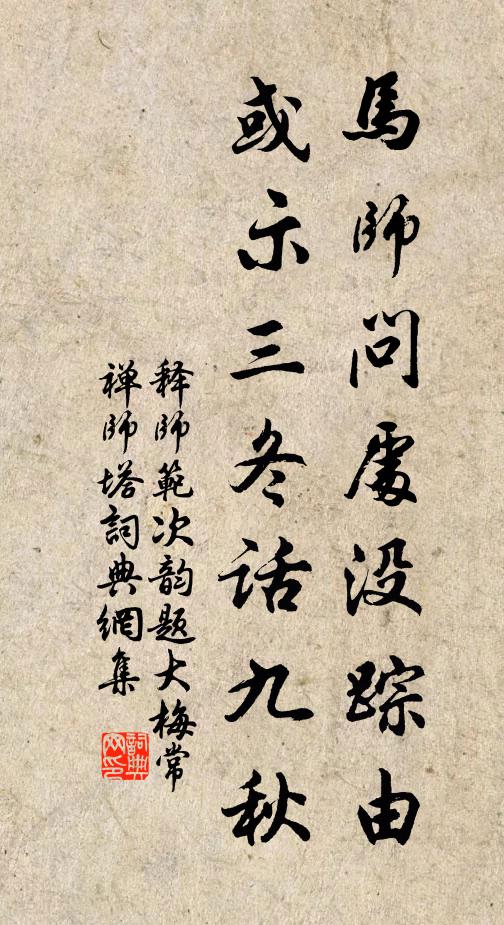 馬師問處没踪由
或示三冬話九秋
释師範次韵題大梅常
禅師塔詞典網集
詞典網印